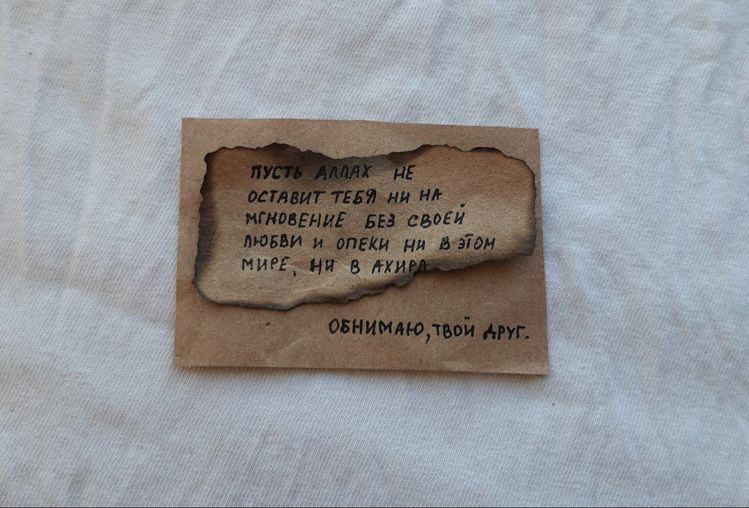 ПУСТЬ АЛЛАХ НЕ
ОСТАВИТ ТЕБЯ НИ НА
МГНОВЕНИЕ БЕЗ СВОЕЙ
ЛЮБВИ И ОПЕКИ НИ В ЭТОМ
МИРЕ, НИ В АХИРА
ОБНИМАЮ, ТВОЙ ДРУГ.